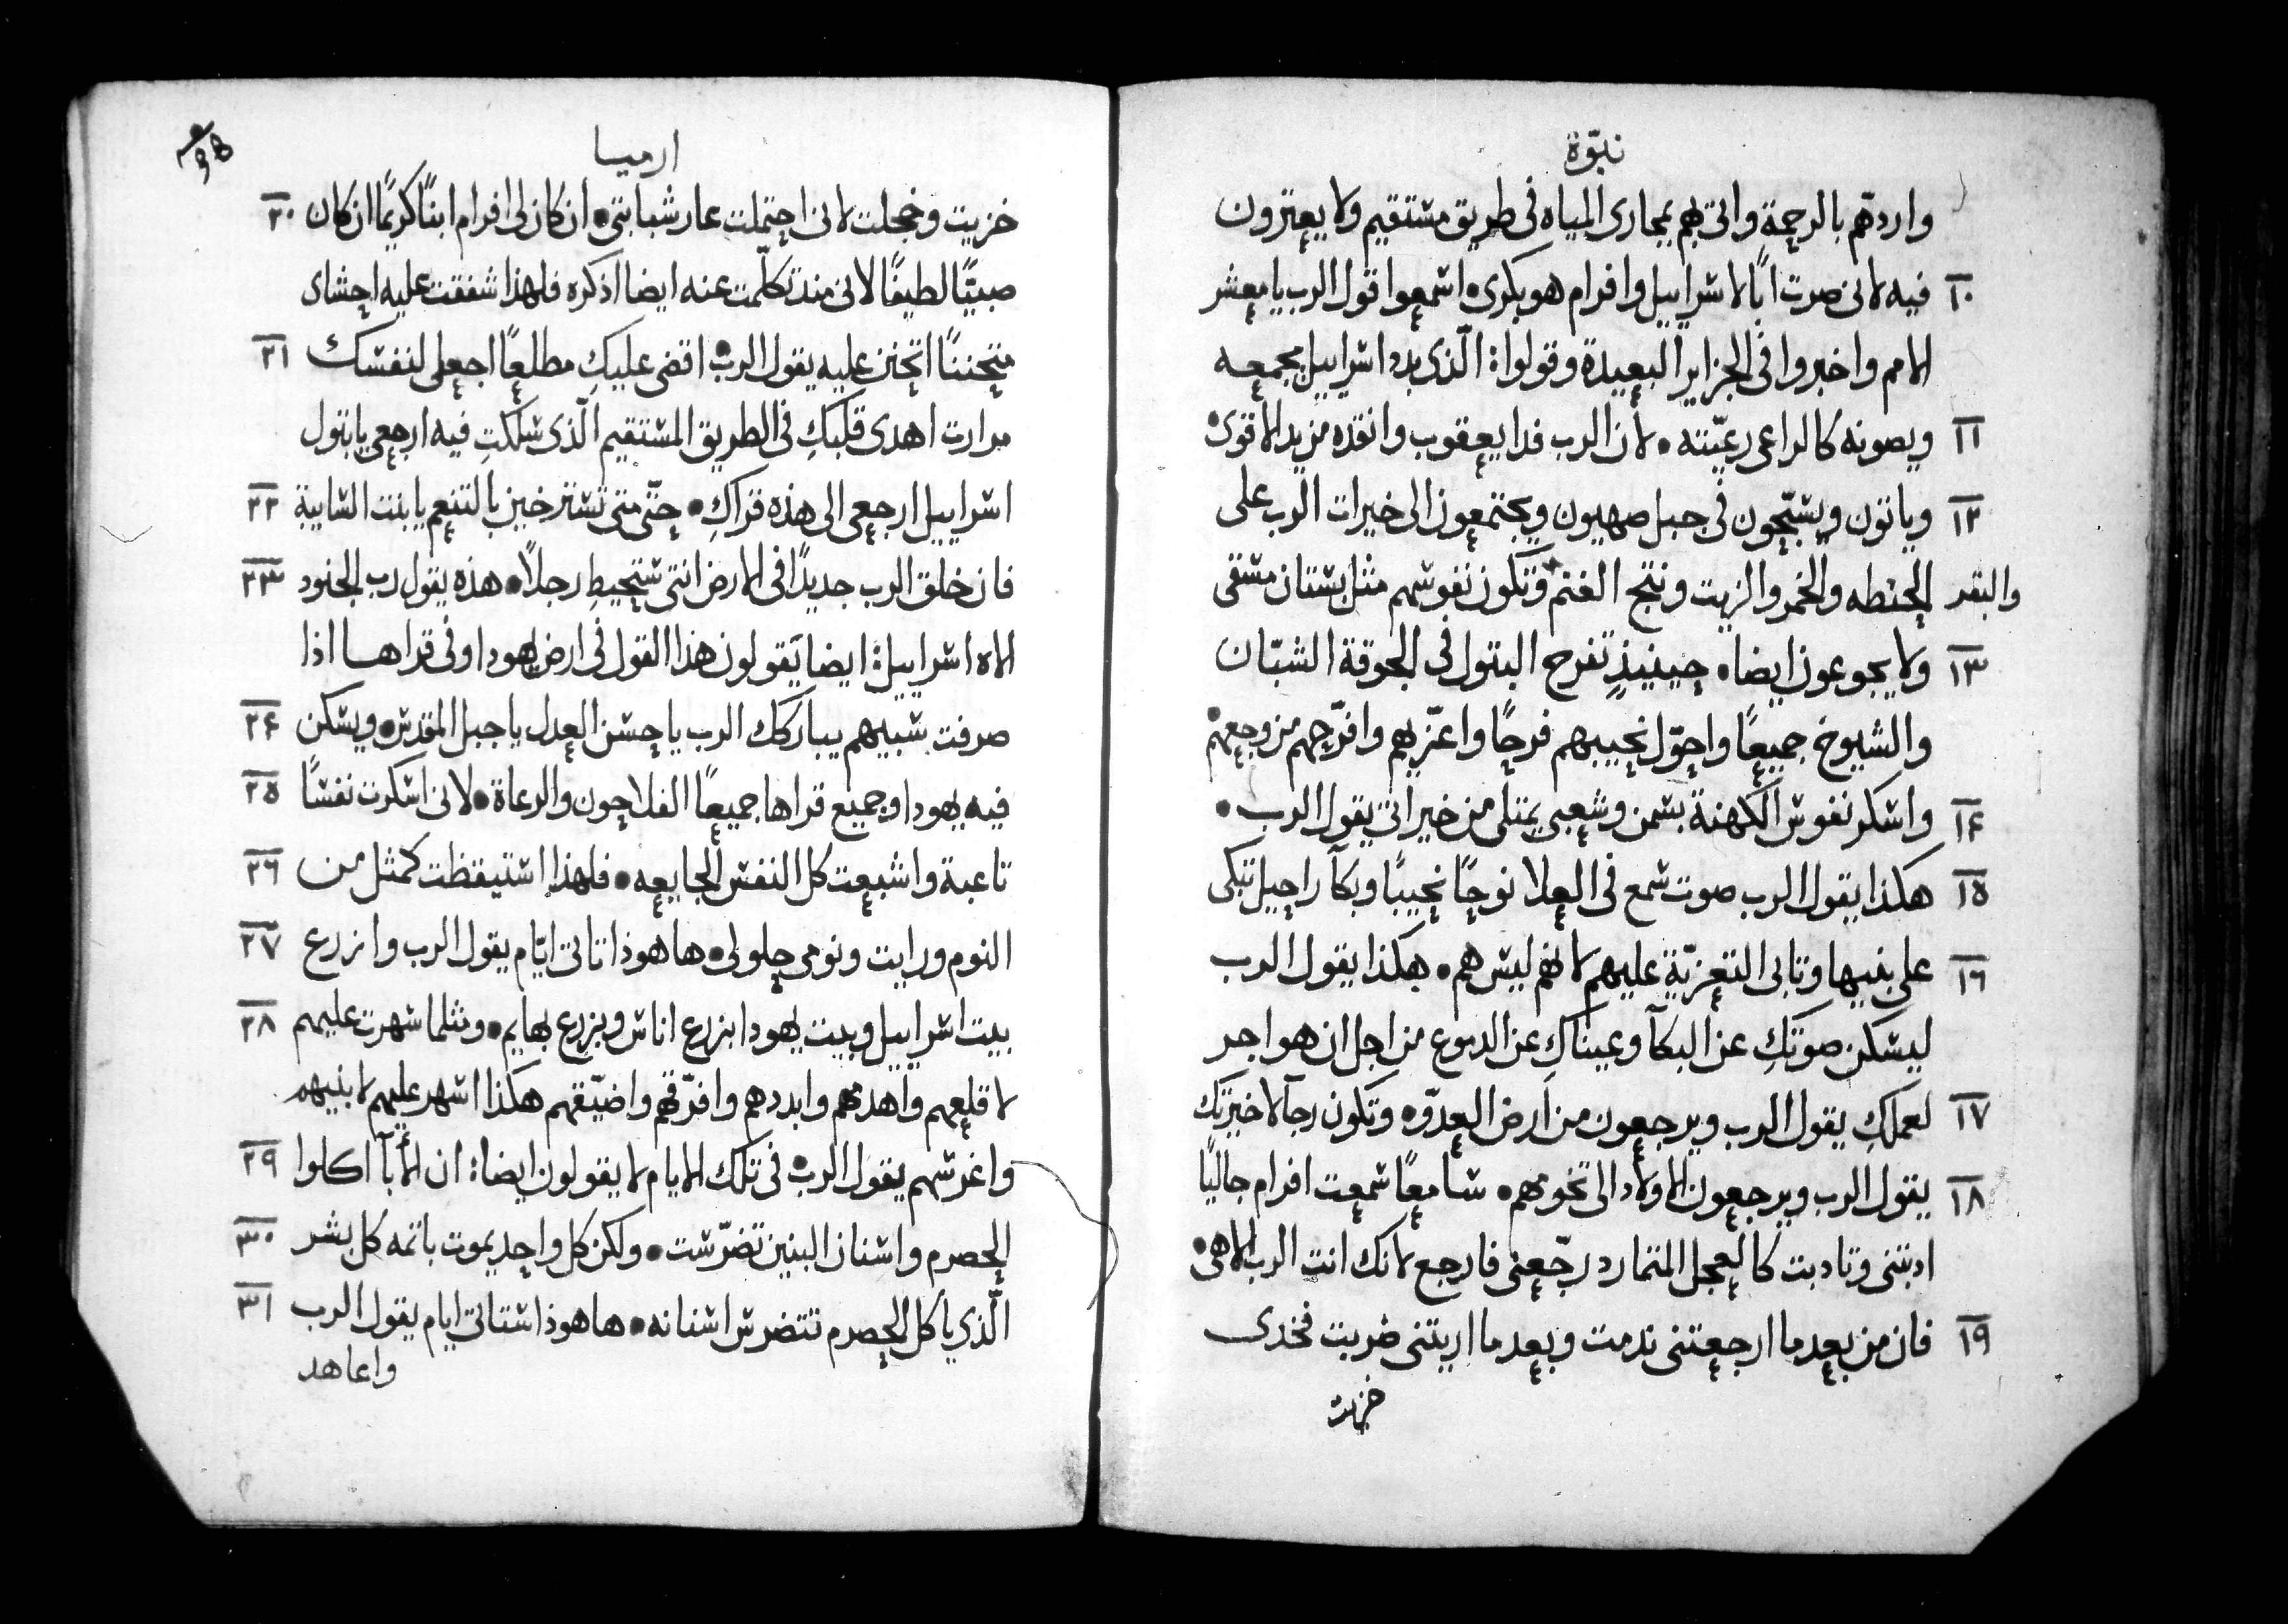 نبوّة
واردهّم بالرحمة واتى بهم بمجارى المياه فى طريق مستقيم ولا يعثرون
١٠ فيه لانى صرت ابًا لاسراييل وافرام هو بكرى • اسمعوا قول الرب يا معشر
الامم واخبروا فى الجزاير البعيدة وقولوا: الّذى بدد اسراييل يجمعه
١١ ويصونه كالراعى رعيّته • لان الرب فدا يعقوب وانقذه من يد الاقوى •
١٢ وياتون ويسبّحون فى جبل صهيون ويجتمعون الى خيرات الرب على
الحنطه والخمر والزيت ونتج الغنم وتكون نفوسهم مثل بستان مسقى
والبقر
١٣ ولا يجوعون ايضا • حينيذٍ تفرح البتول فى الجوقة الشبّان
والشيوخ جميعًا واحوّل نحيبهم فرحًا واعزّيهم وافرّحهم من وجعهم •
١٤ واسكر نفوس الكهنة بسمن وشعبى يمتلى من خيراتى يقول الرب •
١٥ هكذا يقول الرب صوت سمع فى العلا نوحًا نحيبًا وبكآ راحيل تبكى
١٦ على بنيها وتابى التعزيّة عليهم لانهم ليس هم • هكذا يقول الرب
ليسكن صوتكِ عن البكآ وعيناكِ عن الدموع من اجل ان هو اجر
١٧ لعملكِ يقول الرب ويرجعون من ارض العدوّ • وتكون رجآ لاخيرتك
١٨ يقول الرب ويرجعون الاولاد الى تخومهم • سامعًا سمعت افرام جاليًا
ادبتنى وتادبت كالعجل المتمارد رجّعنى فارجع لانك انت الرب الاهى •
١٩ فان من بعد ما ارجعتنى ندمت وبعد ما اريتنى ضربت فخدى
خزيت
ارميا
خزيت وخجلت لانى احتملت عار شبابتى • ان كان لى افرام ابنًا كريمًا ان كان ٢٠
صبيًّا لطيفًا لانى منذ تكلّمت عنه ايضا اذكره فلهذا شفقت عليه احشاى
متحننًا اتحنن عليه يقول الرب • اقضى عليكِ مطلعًا اجعلى لنفسك ٢١
مرارت اهدى قلبكِ فى الطريق المستقيم الّذى سلكتِ فيه ارجعى يا بتول
اسراييل ارجعى الى هذه قراكِ • حتّى متى تسترخين بالتنعم يا بنت السايبة ٢٢
فان خلق الرب جديدًا فى الارض انتى ستحيط رجلاً • هذه يقول رب الجنود ٢٣
الاه اسراييل: ايضا يقولون هذا القول فى ارض يهودا وفى قراها اذا
صرفت سبيهم يباركك الرب يا حسن العدل يا جبل المقدس • ويسكن ٢٤
فيه يهودا وجميع قراها جميعًا الفلاحون والرعاة • لانى اسكرت نفسًا ٢٥
تاعبة واشبعت كل النفس الجايعه • فلهذا استيقظت كمثل من ٢٦
النوم ورايت ونومى حلولى • ها هوذا تاتى ايّام يقول الرب وازرع ٢٧
بيت اسراييل وبيت يهودا بزرع اناس وبزرع بهايم • ومثلما سهرت عليهم ٢٨
لاقلعهم واهدمهم وابددهم وافرّقهم واضيّقهم هكذا اسهر عليهم لابنيهم
واغرسهم يقول الرب • فى تلك الايام لا يقولون ايضا: ان الابآ اكلوا ٢٩
الحصرم واسنان البنين تضرّست • ولكن كل واحد يموت باثمه كل بشر ٣٠
الّذى ياكل الحصرم تتضرس اسنانه • ها هوذا ستاتى ايام يقول الرب ٣١
واعاهد